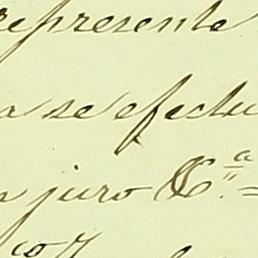 represente
a se efectu
juro &C.ª =